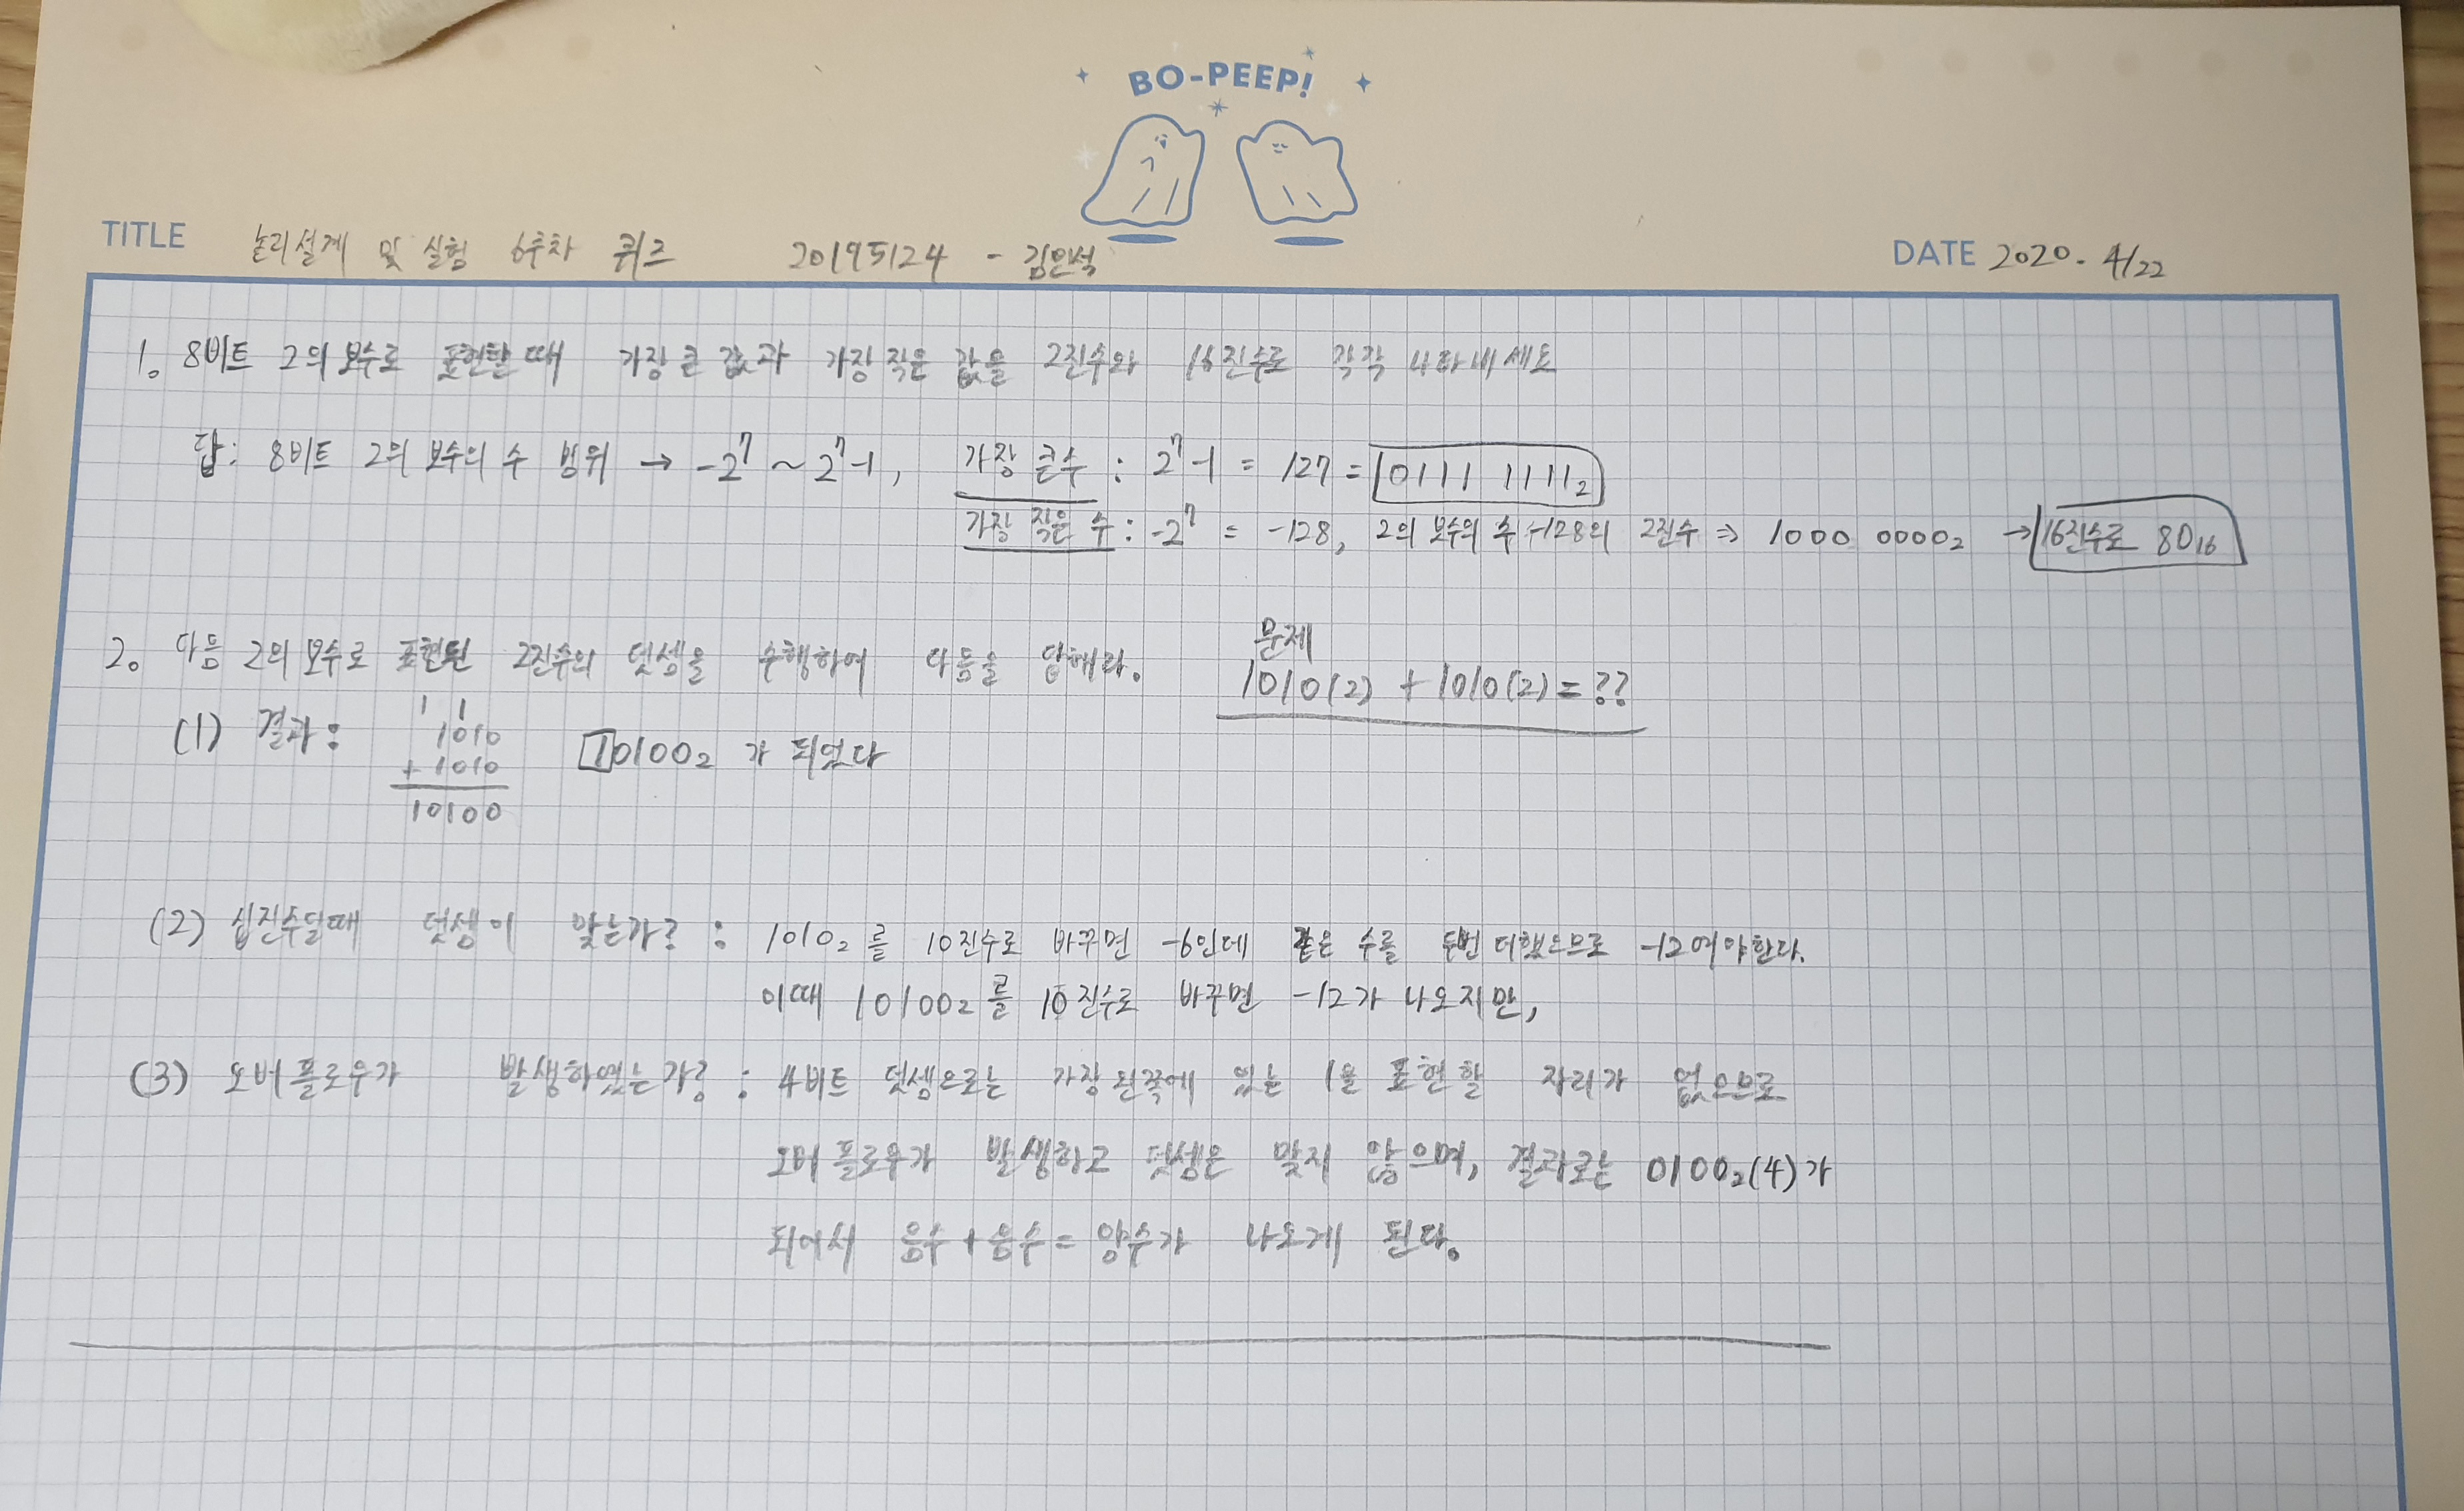 BO-PEEP!
TITLE 논리설계 및 실험 6주차 퀴즈 20195124 - 김인석 DATE 2020. 4/22
1. 8비트 2의 보수로 표현할 때 가장 큰 값과 가장 작은 값을 2진수와 16진수로 각각 나타내세요
답: 8비트 2의 보수의 수 범위 → -2⁷ ~ 2⁷-1, 가장 큰수 : 2⁷-1 = 127 = 0111 1111₂
가장 작은 수 : -2⁷ = -128, 2의 보수의 수 -128의 2진수 ⇒ 1000 0000₂ → 16진수로 80₁₆
2. 다음 2의 보수로 표현된 2진수의 덧셈을 수행하여 다음을 답해라.
문제
1010(2) + 1010(2) = ??
(1) 결과:
1 1
1010
+ 1010
10100
10100₂ 가 되었다
(2) 십진수일때 덧셈이 맞는가? : 1010₂ 를 10진수로 바꾸면 -6인데 같은 수를 두번 더했으므로 -12여야한다.
이때 10100₂ 를 10진수로 바꾸면 -12가 나오지만,
(3) 오버플로우가 발생하였는가? : 4비트 덧셈으로는 가장 왼쪽에 있는 1을 표현할 자리가 없으므로
오버플로우가 발생하고 덧셈은 맞지 않으며, 결과로는 0100₂(4)가
되어서 음수 + 음수 = 양수가 나오게 된다.